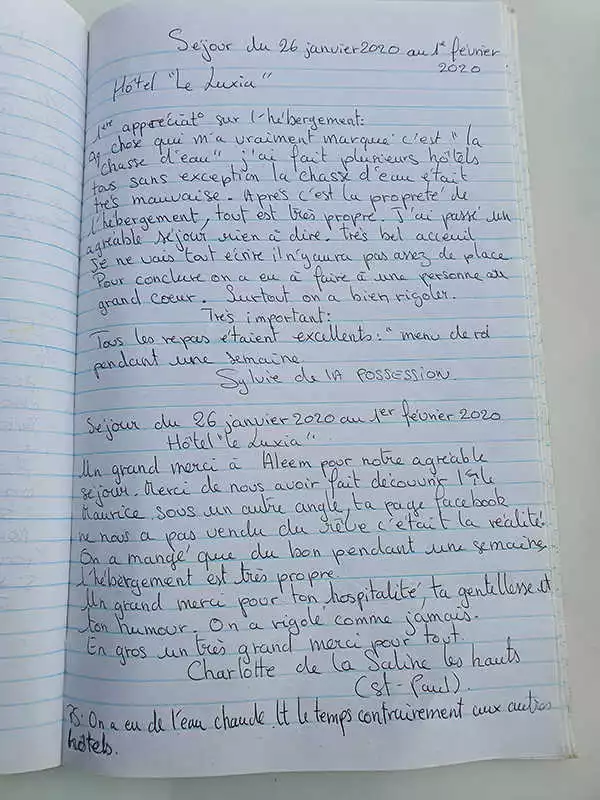 Sejour du 26 janvier 2020 au 1e fevrier
2020
Hôtel "Le Luxia"
1ere appréciat° sur l'hébergement:
chose qui m'a vraiment marqué c'est "la
chasse d'eau" j'ai fait plusieurs hôtels
tous sans exception la chasse d'eau était
très mauvaise. Après c'est la propreté de
l'hébergement, tout est très propre. J'ai passé un
agréable séjour rien à dire. très bel acceuil
Je ne vais tout écrire il n'y aura pas assez de place
Pour conclure on a eu à faire à une personne au
grand coeur. Surtout on a bien rigoler.
Très important:
Tous les repas étaient excellents: "menu de roi
pendant une semaine
Sylvie de LA POSSESSION
Séjour du 26 janvier 2020 au 1er février 2020
Hôtel "le Luxia"
Un grand merci à Aleem pour notre agréable
séjour. Merci de nous avoir fait découvrir l'île
Maurice sous un autre angle, ta page facebook
ne nous a pas vendu du rêve c'était la réalité.
On a mangé que du bon pendant une semaine,
l'hébergement est très propre.
Un grand merci pour ton hospitalité, ta gentillesse et
ton humour. On a rigolé comme jamais.
En gros un très grand merci pour tout.
Charlotte de la Saline les hauts
(St-Paul).
PS: On a eu de l'eau chaude tt le temps contrairement aux autres
hôtels.